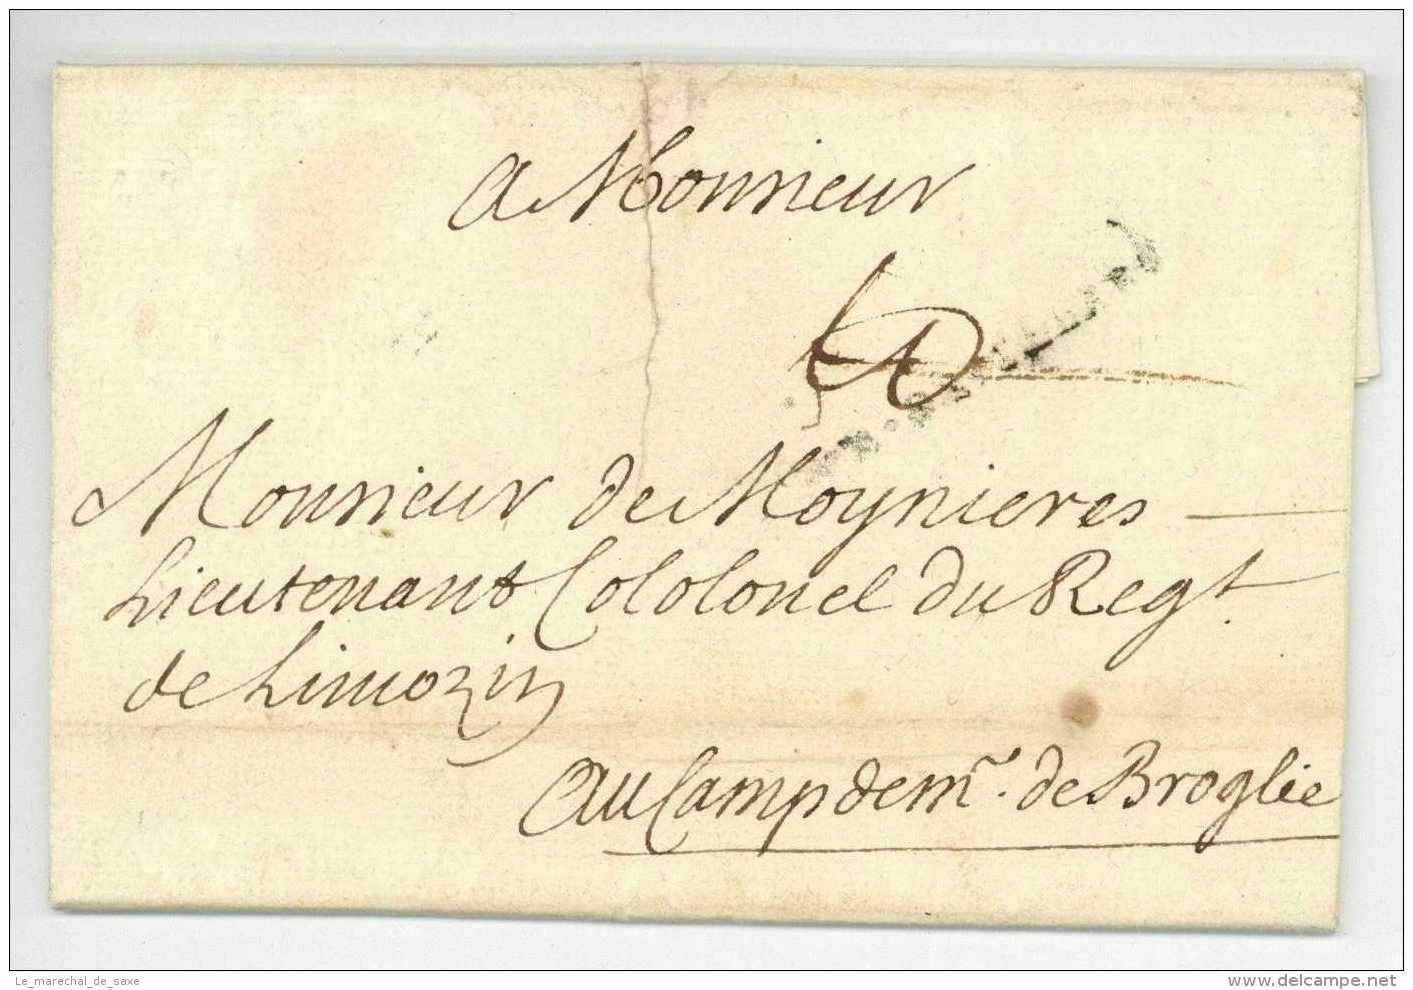 a Monsieur
Monsieur de Moynieres
Lieutenant Cololonel du Regt
de Limozin
au Camp de mr. de Broglie
Le_marechal_de_saxe
delcampe.net